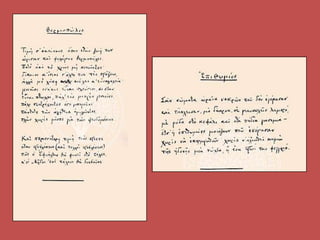 Θερμοπύλες
Τιμή σ' εκείνους όπου στην ζωή των
ώρισαν και φυλάγουν Θερμοπύλες.
Ποτέ από το χρέος μη κινούντες·
δίκαιοι κ' ίσιοι σ' όλες των τες πράξεις,
αλλά με λύπη κιόλας κ' ευσπλαχνία·
γενναίοι οσάκις είναι πλούσιοι, κι όταν
είναι πτωχοί, πάλ' εις μικρόν γενναίοι,
πάλι συντρέχοντες όσο μπορούνε·
πάντοτε την αλήθεια ομιλούντες,
πλην χωρίς μίσος για τους ψευδομένους.
Και περισσότερη τιμή τους πρέπει
όταν προβλέπουν (και πολλοί προβλέπουν)
πως ο Εφιάλτης θα φανεί στο τέλος,
κ' οι Μήδοι επί τέλους θα διαβούνε.
Επιθυμίες
Σαν σώματα ωραία νεκρών που δεν εγέρασαν
και τάκλεισαν, με δάκρυα, σε μαυσωλείο λαμπρό,
με ρόδα στο κεφάλι και στα πόδια γιασεμιά —
έτσ' η επιθυμίες μοιάζουν που επέρασαν
χωρίς να εκπληρωθούν· χωρίς ν' αξιωθεί καμιά
της ηδονής μια νύχτα, ή ένα πρωί της φεγγερό.